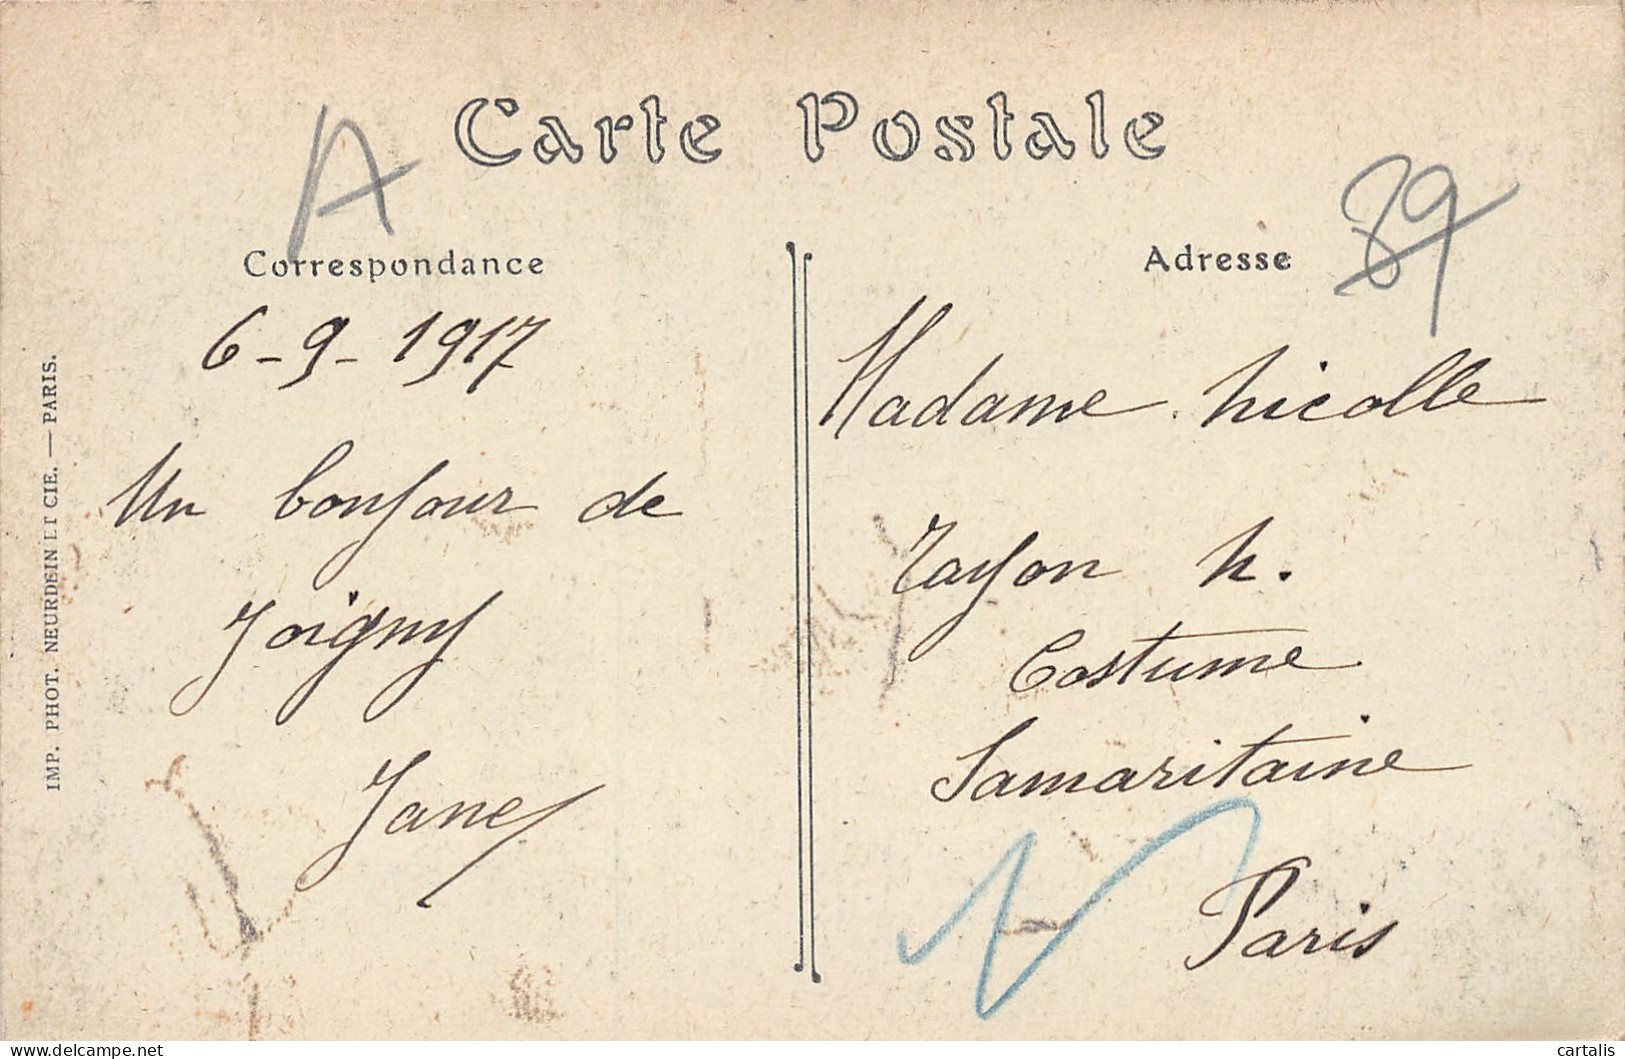 Carte Postale
A
89
Correspondance
6-9-1917
Un bonjour de
Joigny
Jane
Adresse
Madame Nicolle
rayon N.
Costume
Samaritaine
Paris
IMP. PHOT. NEURDEIN ET CIE. — PARIS.
delcampe.net
cartalis